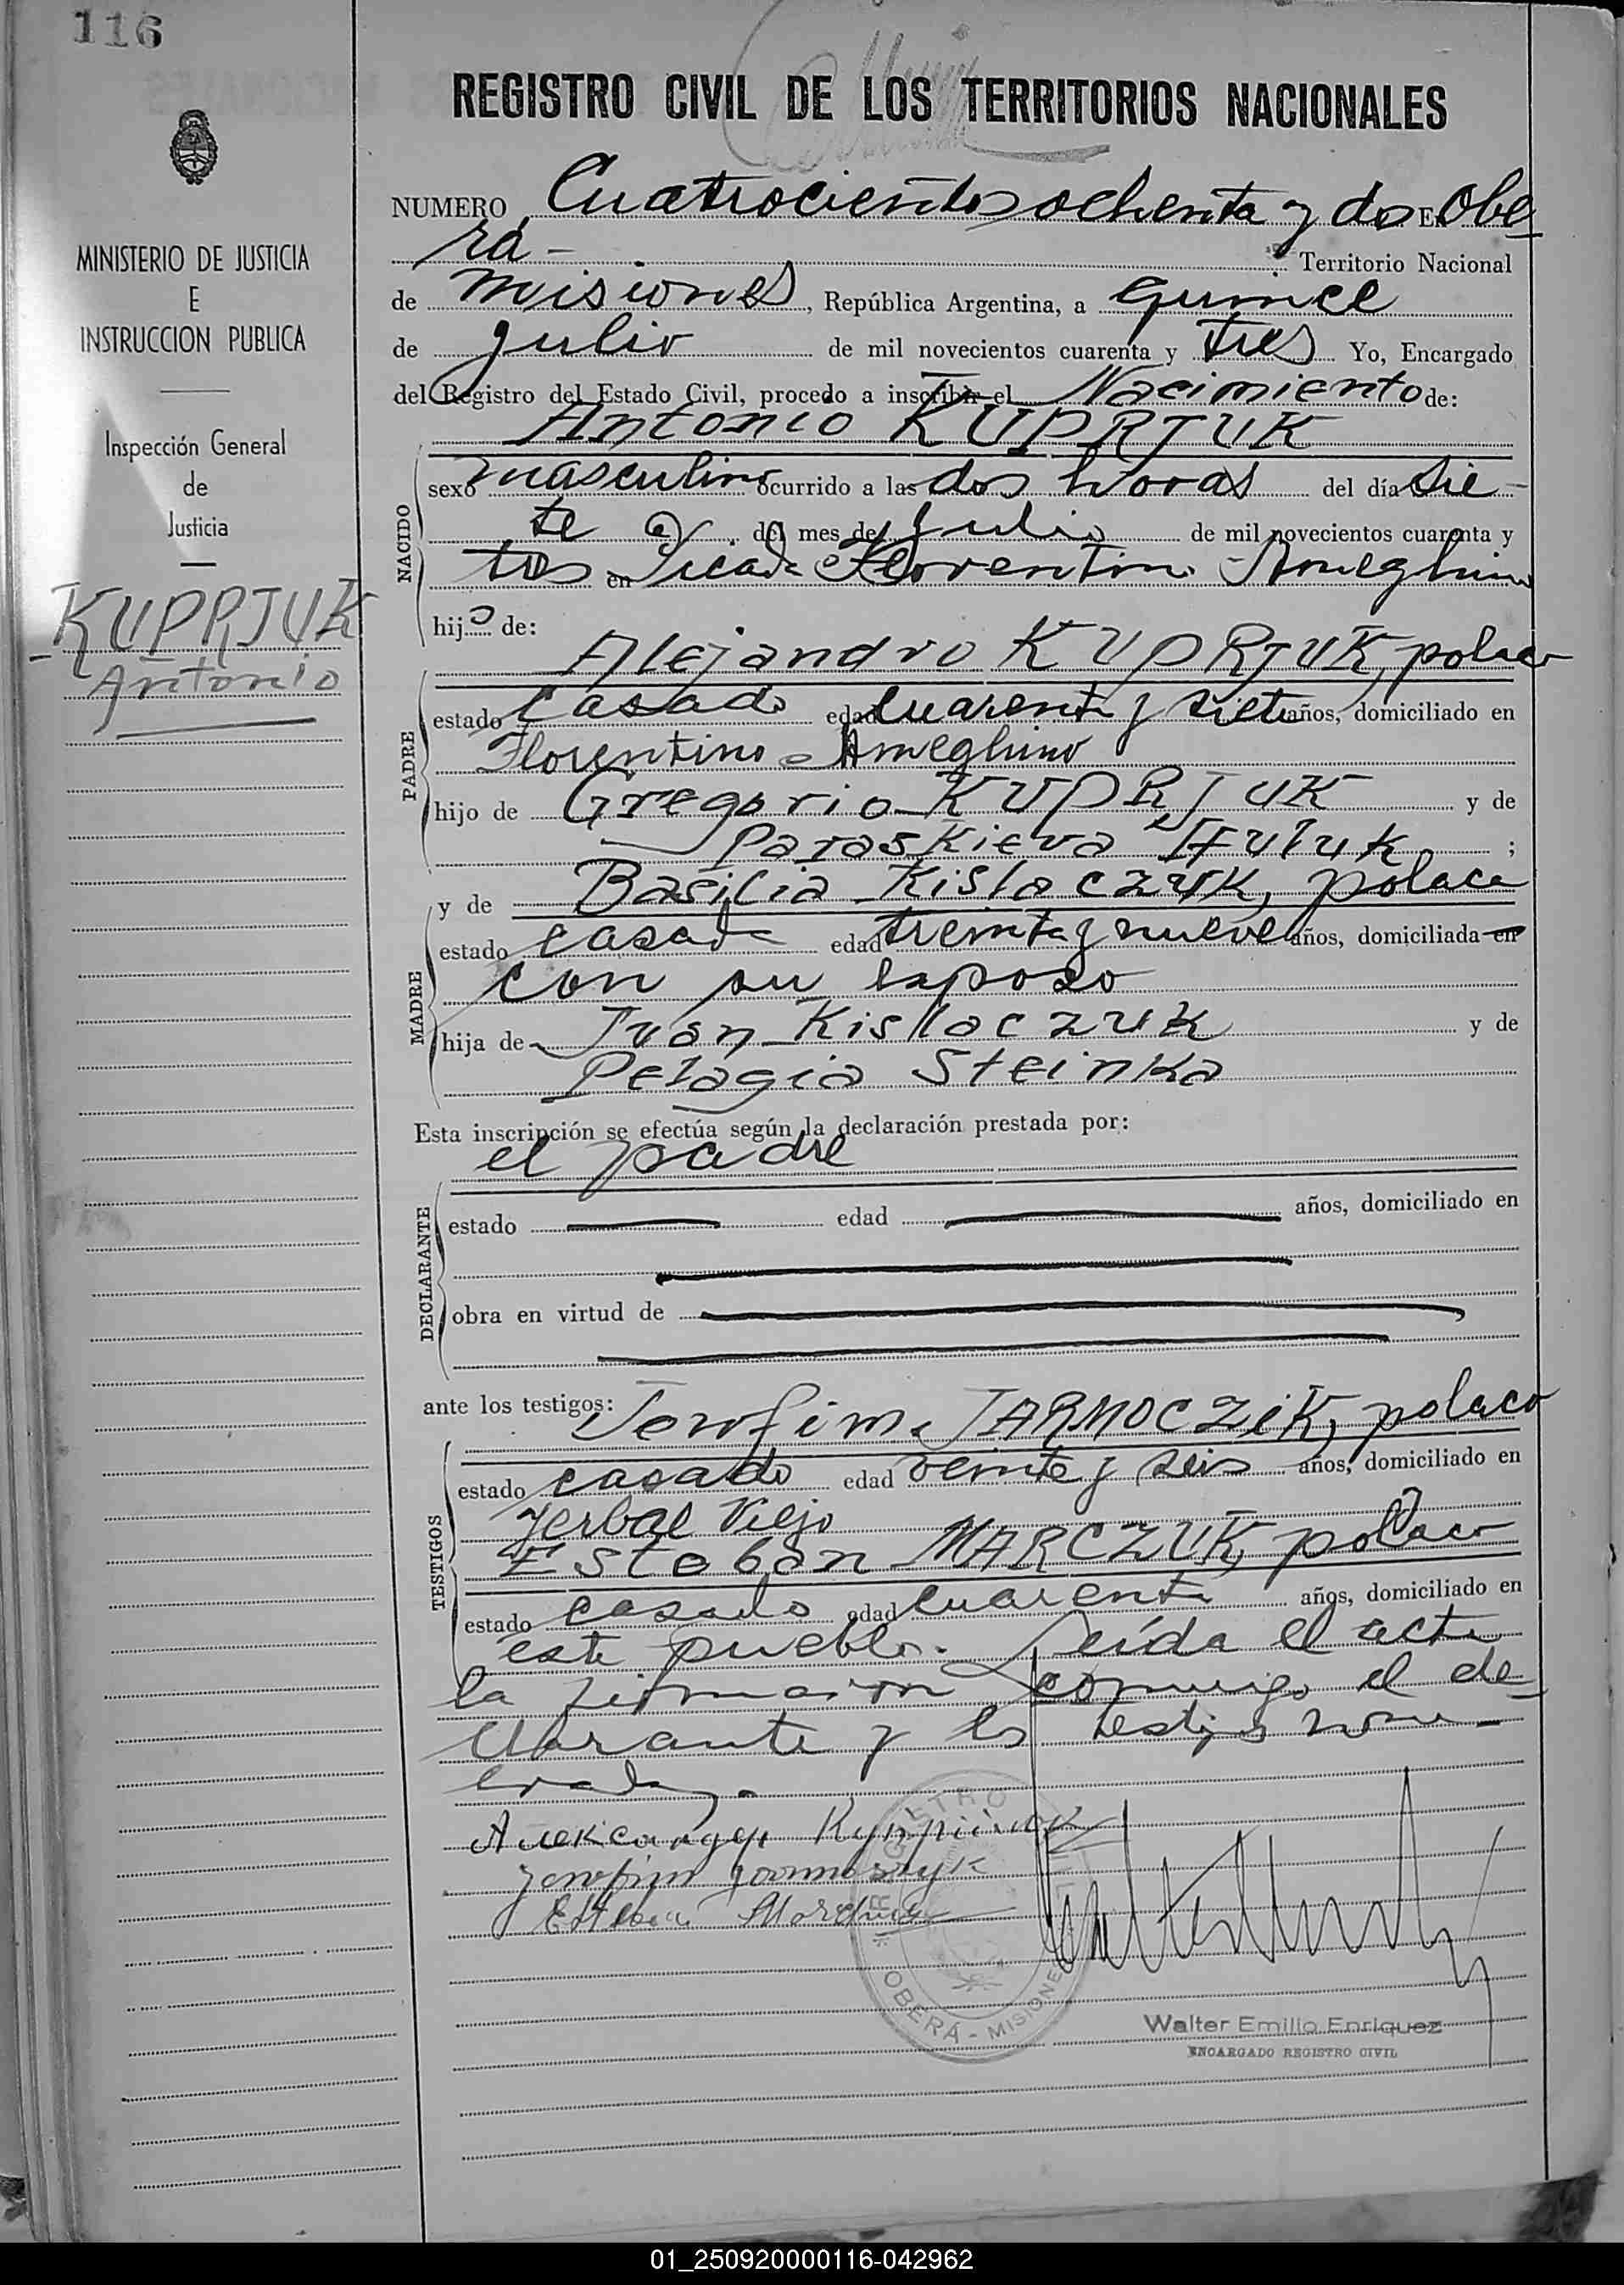 116
REGISTRO CIVIL DE LOS TERRITORIOS NACIONALES
MINISTERIO DE JUSTICIA
E
INSTRUCCION PUBLICA
Inspección General
de
Justicia
KUPRJUK
Antonio
NUMERO Cuatrocientos ochenta y dos EN Obe
rá - Territorio Nacional
de Misiones, República Argentina, a quince
de julio de mil novecientos cuarenta y tres Yo, Encargado
del Registro del Estado Civil, procedo a inscribir el Nacimiento de:
Antonio KUPRJUK
NACIDO
sexo masculino ocurrido a las dos horas del día sie-
te del mes de julio de mil novecientos cuarenta y
tres en Picada Florentino Ameghino
hijo de:
Alejandro KUPRJUK, polaco
PADRE
estado casado edad cuarenta y siete años, domiciliado en
Florentino Ameghino
hijo de Gregorio KUPRJUK y de
Paraskieva ;
y de Basilia Kislaczuk, polaca
MADRE
estado casada edad treinta y nueve años, domiciliada en
con su esposo
hija de Juan Kislaczuk y de
Pelagia Steinka
Esta inscripción se efectúa según la declaración prestada por:
el padre
DECLARANTE
estado edad años, domiciliado en
obra en virtud de
ante los testigos: Serofim JARMOCZiK, polaco
TESTIGOS
estado casado edad veinte y seis años, domiciliado en
Yerbal Viejo
Esteban MARCZUK, polaco
estado casado edad cuarenta años, domiciliado en
este pueblo. Leída el acta
la firmaron conmigo el de-
clarante y los testigos nom-
brados.
Александер
Esteban
REGISTRO CIVIL
* OBERÁ - MISIONES
Walter Emilio Enriquez
ENCARGADO REGISTRO CIVIL
01_250920000116-042962